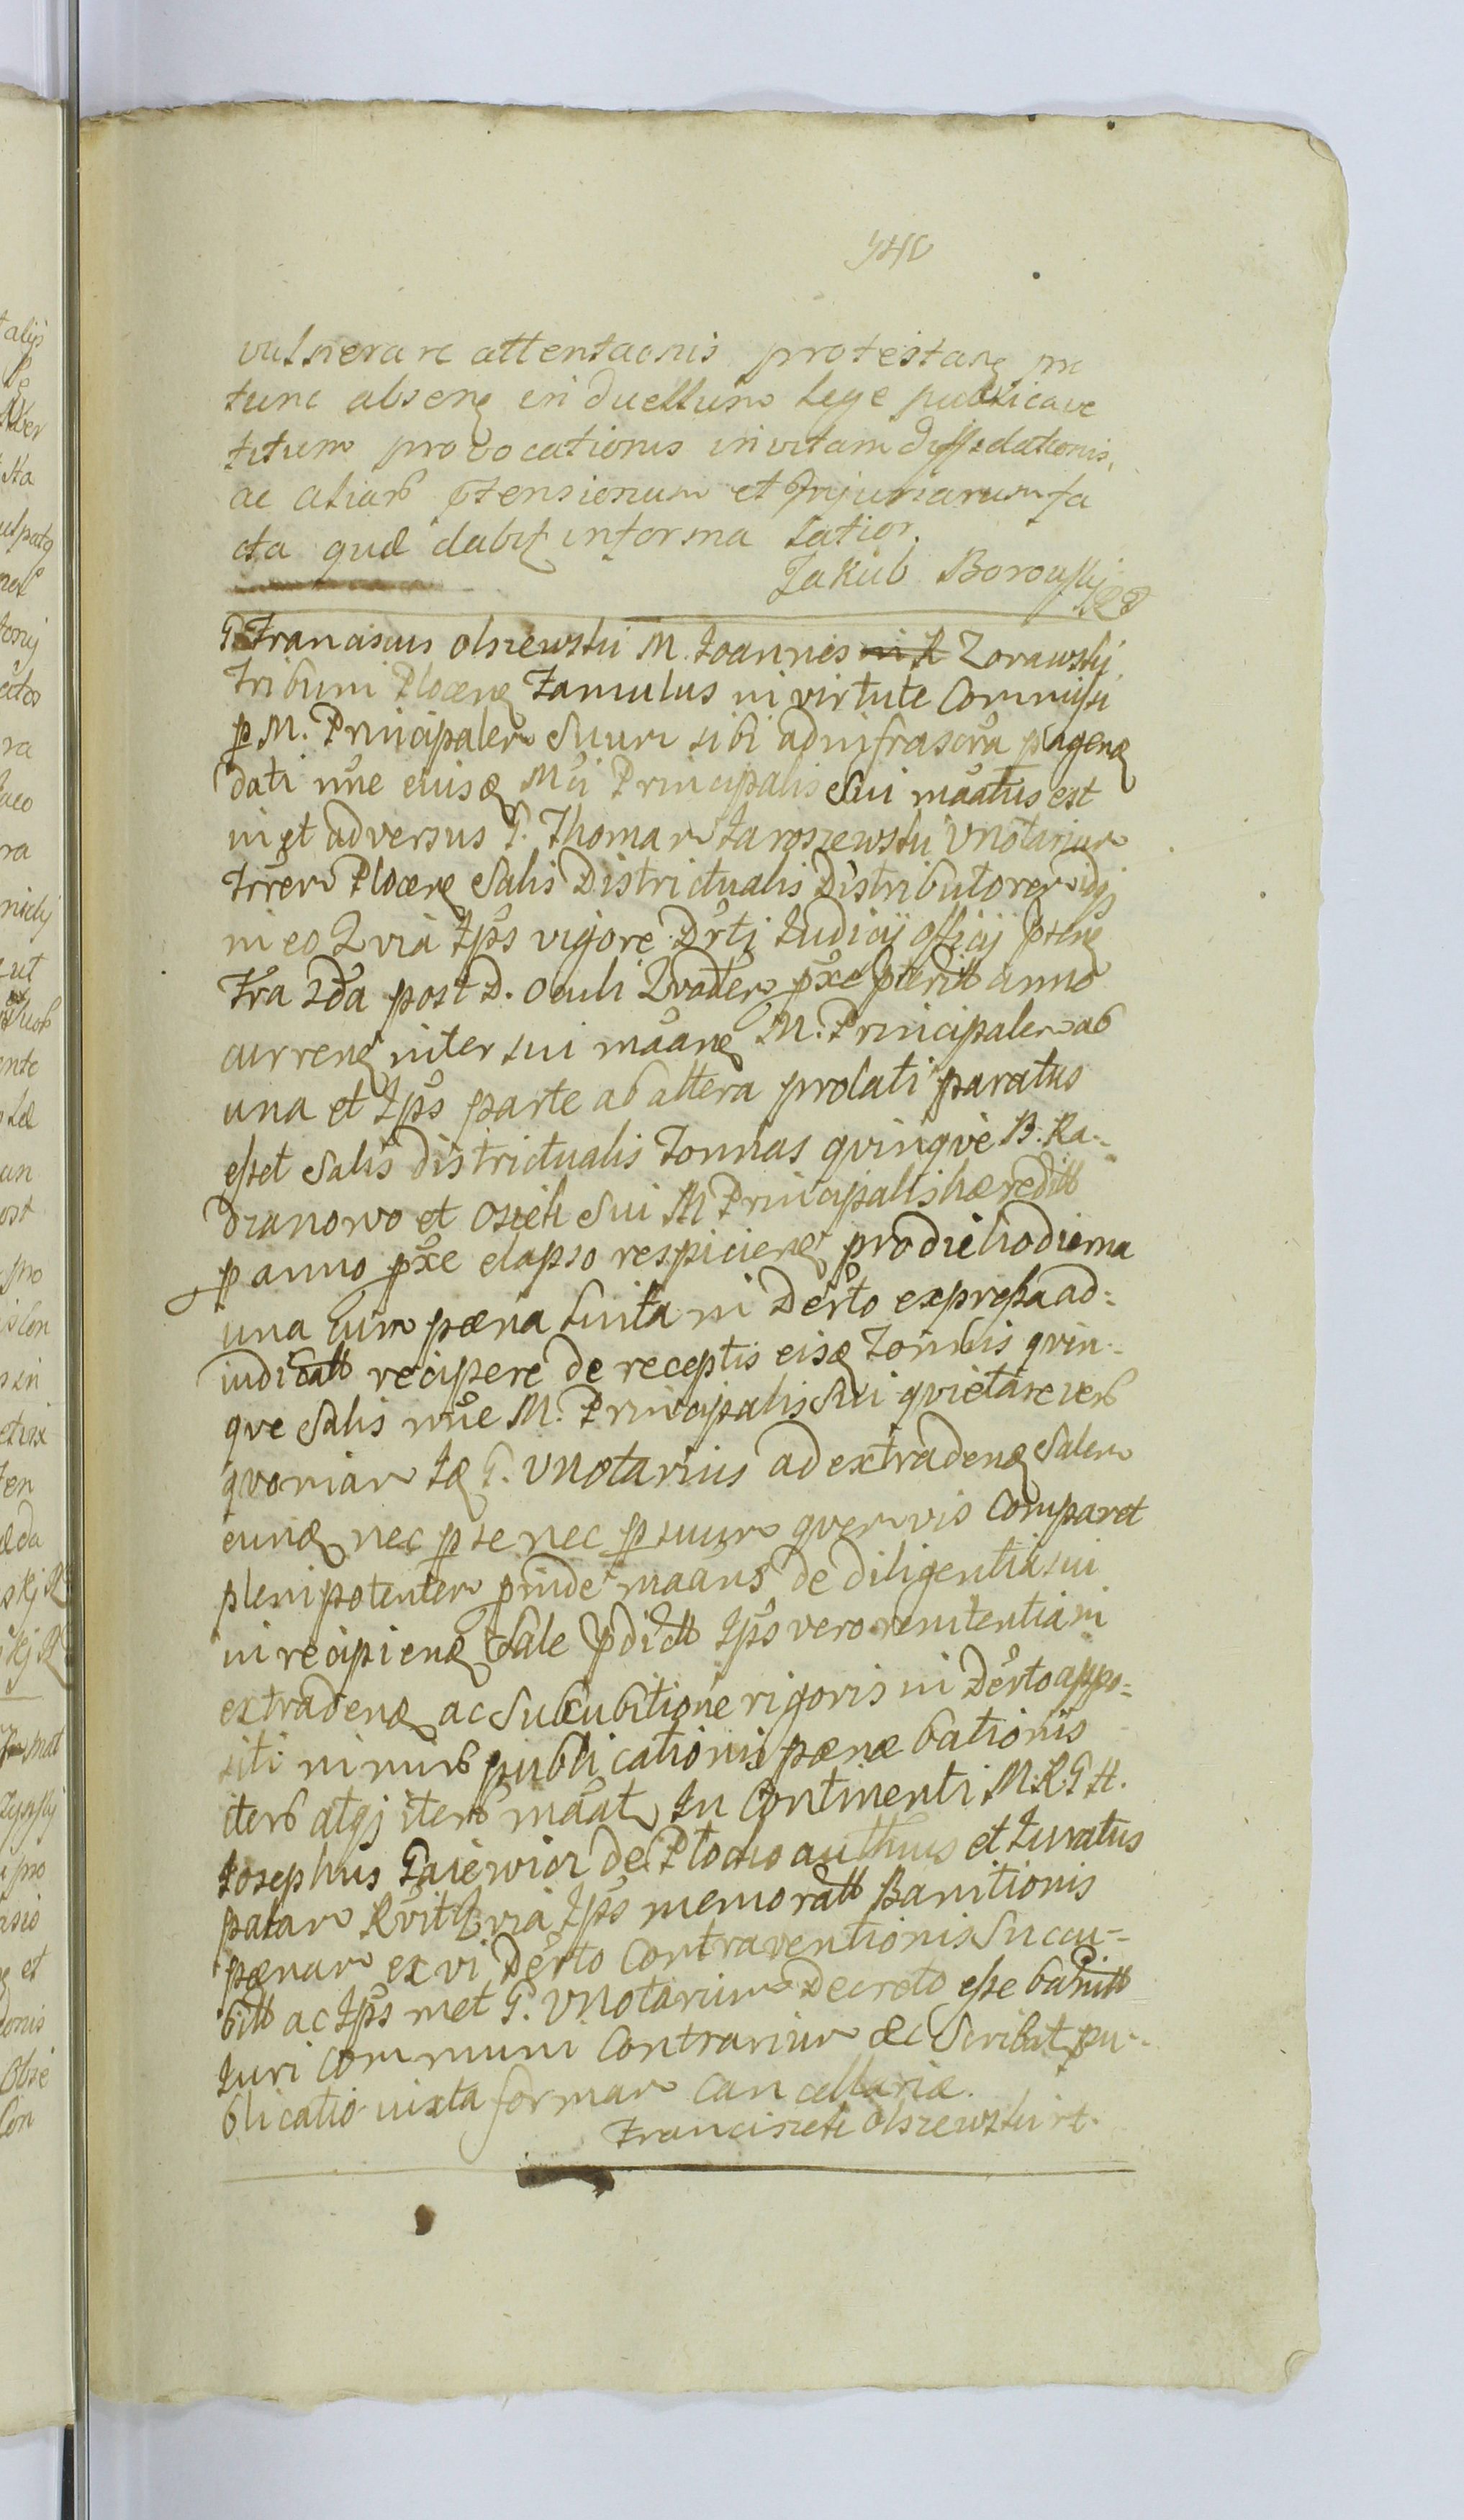 vulnerare attentaonis protestanę in
tunc absenę in duellum Lege publica ve
titum provocationis in vitam diffidationis,
ac aliarb offensionum et Injuriarum fa
cta quæ dabit informa latior.
Jakub Borowskj
G. Franciscus Olszewski M. Joannis Zorawskj
Tribuni Plocenę Famulus in virtute Commissi
p M. Principalem Suum sibi ad infrascra pagenę
dati nne eiusę Mci Principalis Sui maatus est
in et adversus G. Thomam Jaroszewski VNotarium
Trrem Plocenę Salis Districtualis Distributorem idqj
in eo Qvia Ips vigore Drti Judicij Officij ptenę
Fra 2da post D. Oculi Qvadem pxe pterita anno
currenę inter sui maanę M. Principalem ab
una et Ips parte ab altera prolati paratus
esset Salis districtualis Tonnas qvinqve B. Ra-
dzanowo et Osiek Sui M Principalis hæredit
p anno pxe elapso respicienę pro die hodierna
una Cum pæna Luita in Derto expressa ad-
iudicatt recipere de receptis eisę Tonnis qvin-
qve Salis nne M. Principalis Sui qvietare verb
qvoniam Ię G. VNotarius ad extradenę Salem
eunę nec p se nec p suum qvemvis Comparet
plenipotentem pinde maans de diligentia sui
in recipienę Sale pdictt Ips vero renitentia in
extradenę ac Sucubitione rigoris in Derto appo-
siti nimirb publicationis pænæ bationis
iterb atqj iterb maat In Continenti M. R G H.
Josephus Gaiewicz de Plocko authus et Juratus
palam Rvit Qvia Ips memoratt Banitionis
pænam ex vi Derto Contraventionis Succu-
bitt ac Ips met G. VNotarium Decreto esse banitt
Juri Communi Contrarium &c Scribat pu-
blicatio iuxta formam Cancellariæ.
Franciszek Olszewski rt.